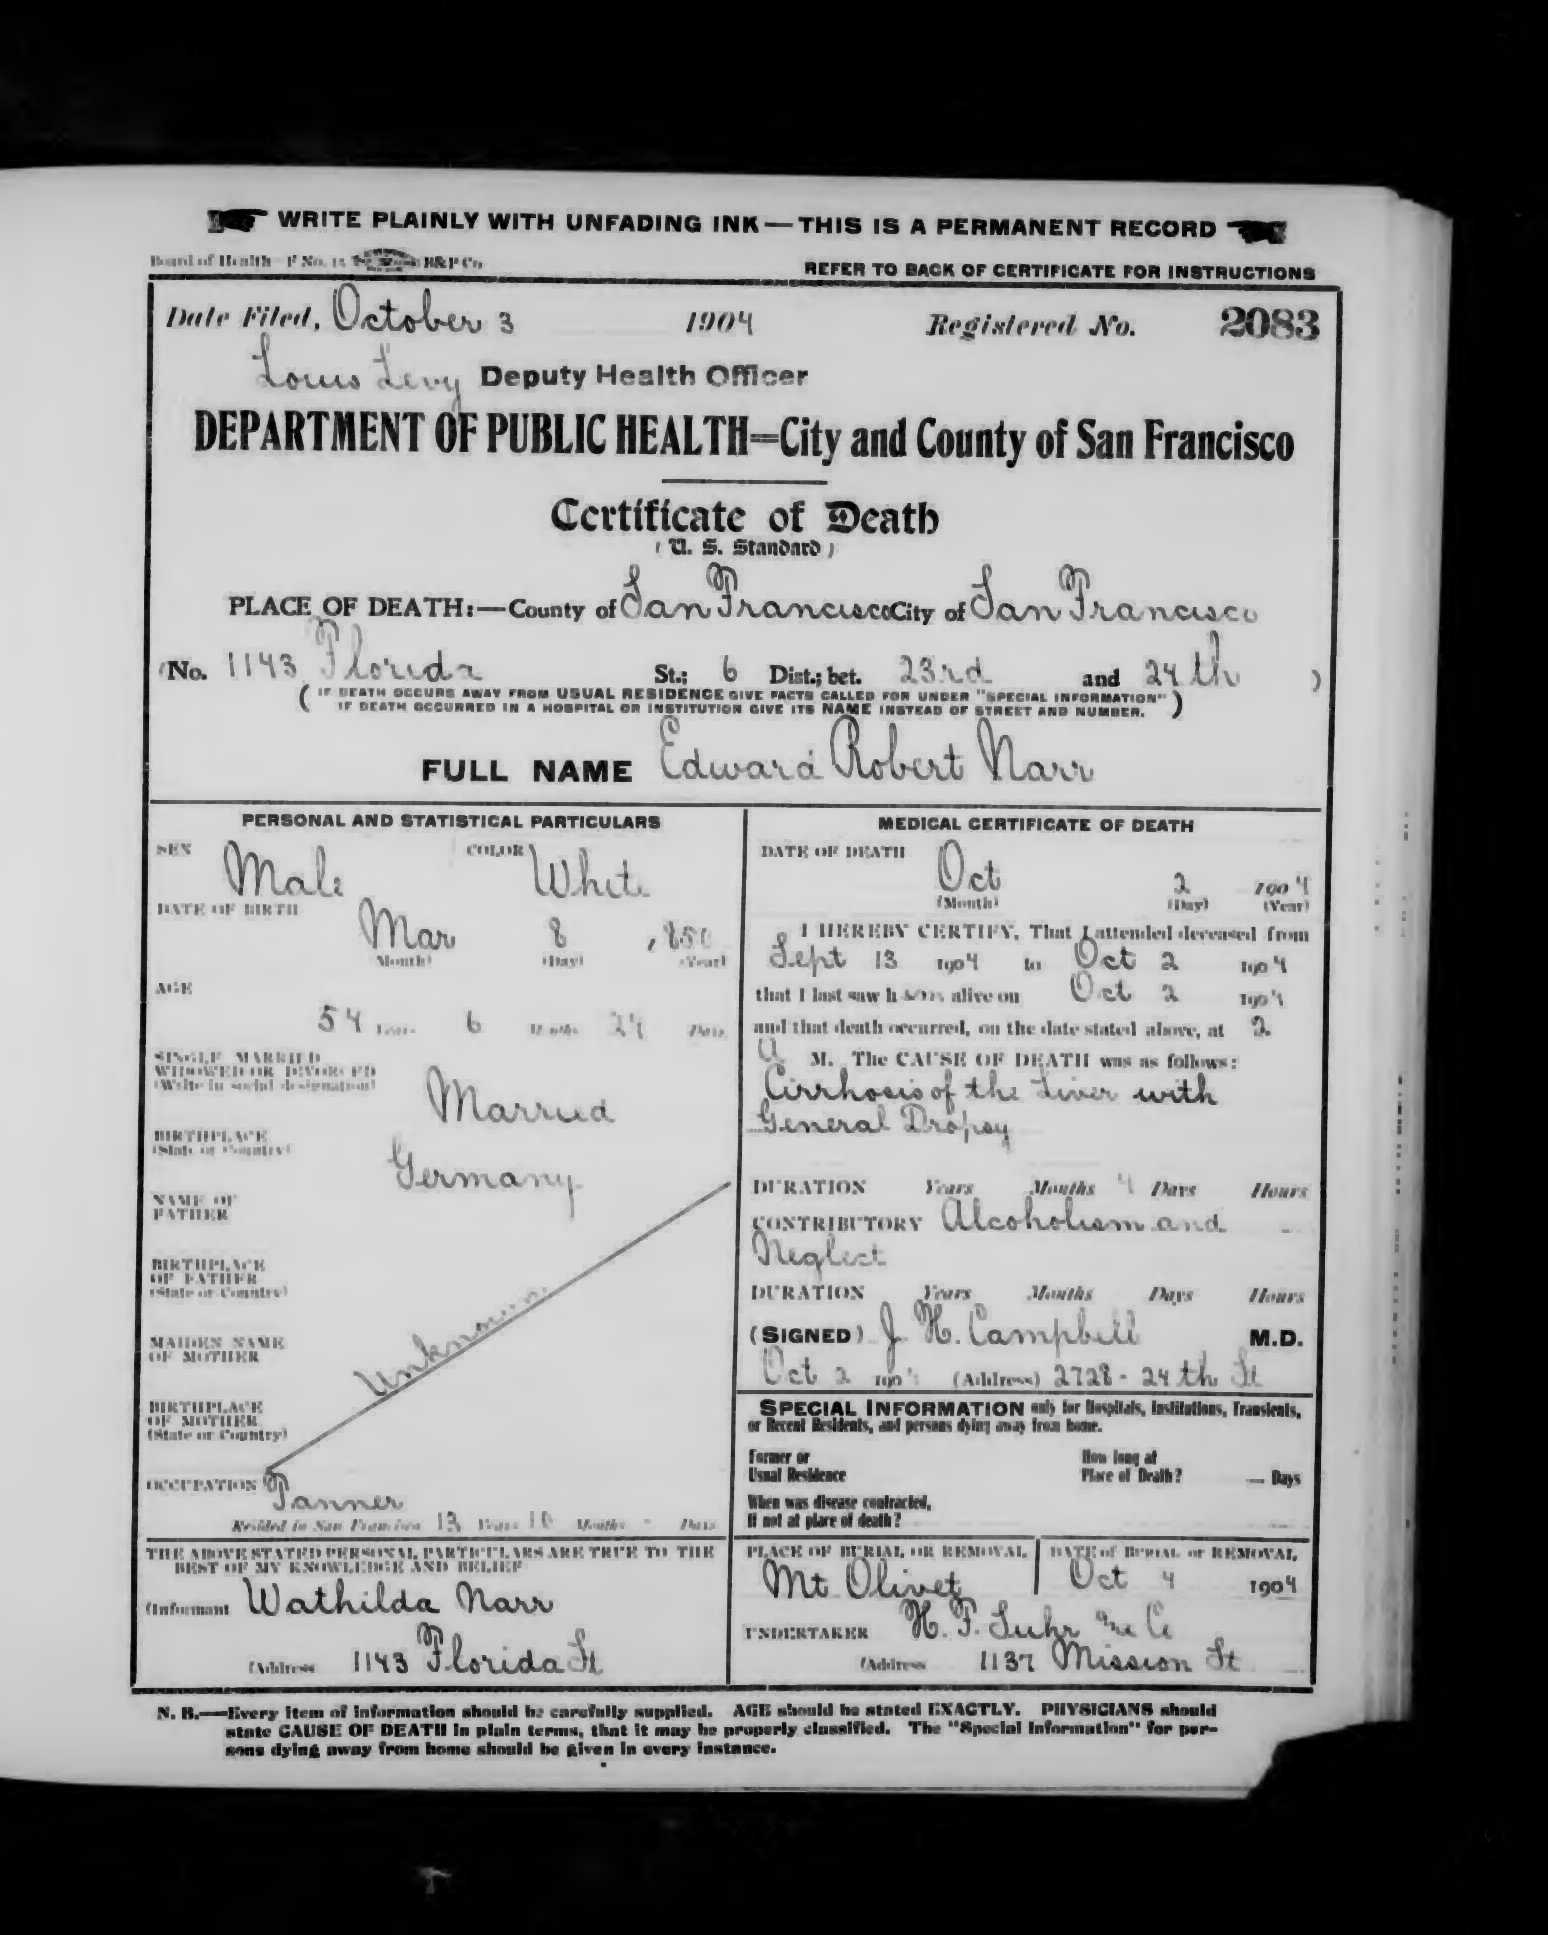 WRITE PLAINLY WITH UNFADING INK—THIS IS A PERMANENT RECORD
Board of Health—F No. 15 B&P Co
REFER TO BACK OF CERTIFICATE FOR INSTRUCTIONS
Date Filed, October 3 1904 Registered No. 2083
Louis Levy Deputy Health Officer
DEPARTMENT OF PUBLIC HEALTH=City and County of San Francisco
Certificate of Death
(U. S. Standard)
PLACE OF DEATH:—County of San Francisco City of San Francisco
(No. 1143 Florida St.; 6 Dist.; bet. 23rd and 24th )
( IF DEATH OCCURS AWAY FROM USUAL RESIDENCE GIVE FACTS CALLED FOR UNDER "SPECIAL INFORMATION" )
IF DEATH OCCURRED IN A HOSPITAL OR INSTITUTION GIVE ITS NAME INSTEAD OF STREET AND NUMBER.
FULL NAME Edward Robert Narr
PERSONAL AND STATISTICAL PARTICULARS
SEX Male COLOR White
DATE OF BIRTH
Mar 8 1850
(Month) (Day) (Year)
AGE
54 Years 6 Months 24 Days
SINGLE MARRIED
WIDOWED OR DIVORCED
(Write in social designation)
Married
BIRTHPLACE
(State or Country)
Germany
NAME OF
FATHER
BIRTHPLACE
OF FATHER
(State or Country)
Unknown
MAIDEN NAME
OF MOTHER
BIRTHPLACE
OF MOTHER
(State or Country)
OCCUPATION Tanner
Resided in San Francisco 13 Years 10 Months - Days
THE ABOVE STATED PERSONAL PARTICULARS ARE TRUE TO THE
BEST OF MY KNOWLEDGE AND BELIEF
(Informant Wathilda Narr
(Address 1143 Florida St
MEDICAL CERTIFICATE OF DEATH
DATE OF DEATH
Oct 2 1904
(Month) (Day) (Year)
I HEREBY CERTIFY, That I attended deceased from
Sept 13 1904 to Oct 2 1904
that I last saw him alive on Oct 2 1904
and that death occurred, on the date stated above, at 2
A M. The CAUSE OF DEATH was as follows:
Cirrhosis of the Liver with
General Dropsy
DURATION Years Months 4 Days Hours
CONTRIBUTORY Alcoholism and
Neglect
DURATION Years Months Days Hours
(SIGNED) J. H. Campbell M.D.
Oct 2 1904 (Address) 2728 - 24th St
SPECIAL INFORMATION only for Hospitals, Institutions, Transients,
or Recent Residents, and persons dying away from home.
Former or
Usual Residence
How long at
Place of Death? — Days
When was disease contracted,
If not at place of death?
PLACE OF BURIAL OR REMOVAL
Mt. Olivet
DATE of BURIAL or REMOVAL
Oct 4 1904
UNDERTAKER H. F. Suhr & Co
(Address 1137 Mission St
N. B.—Every item of information should be carefully supplied. AGE should be stated EXACTLY. PHYSICIANS should
state CAUSE OF DEATH in plain terms, that it may be properly classified. The "Special Information" for per-
sons dying away from home should be given in every instance.